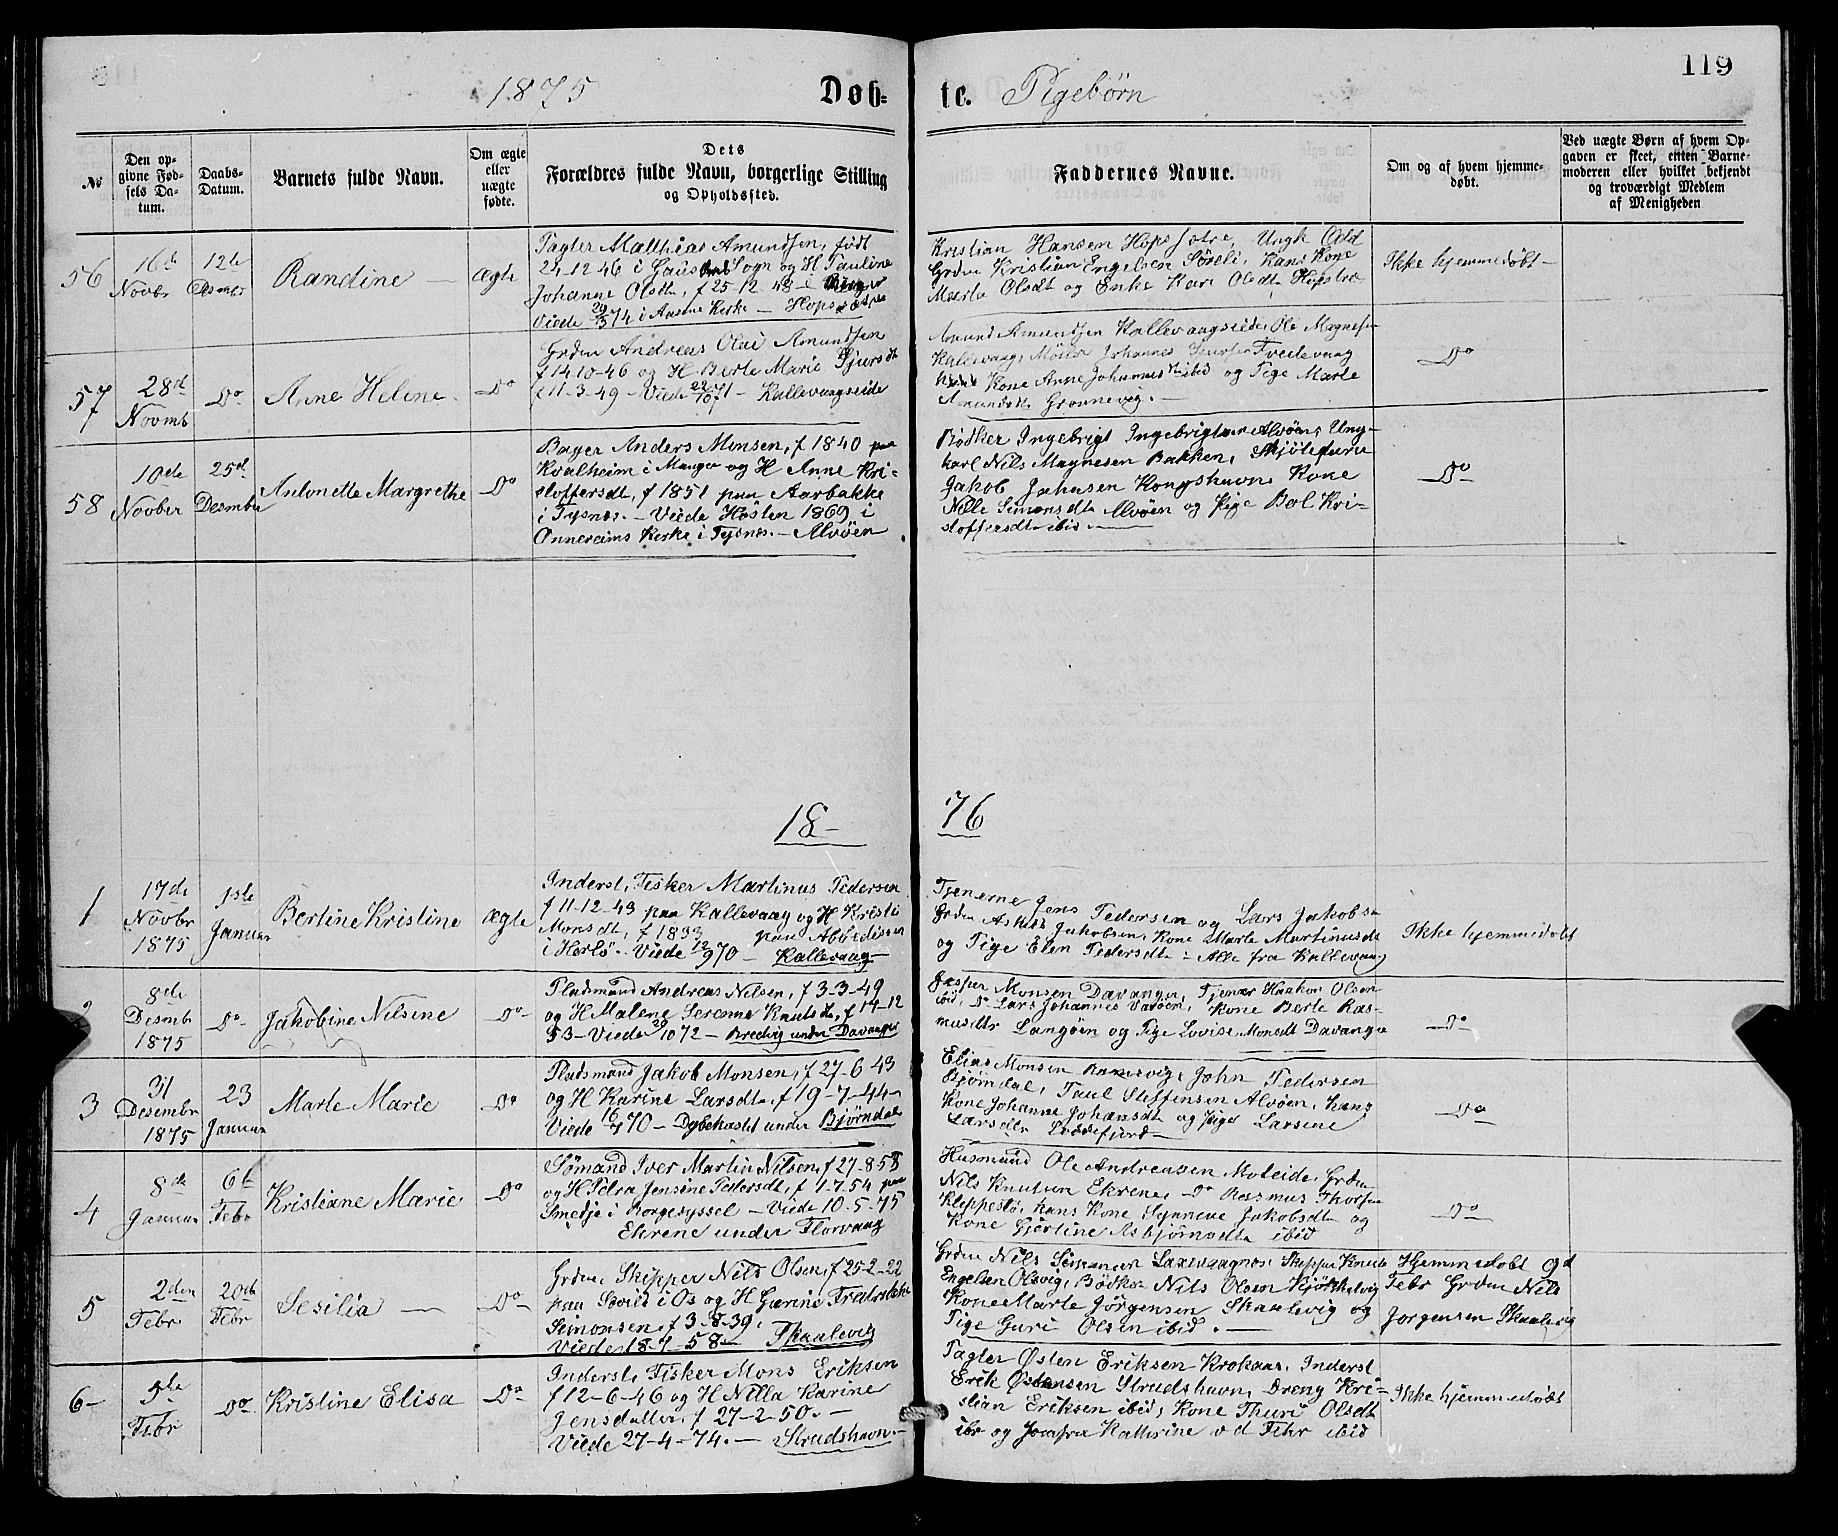 119
1875 Døb- te. Pigebørn
№
Den op-
givne Fød-
sels Da-
tum.
Daabs-
Datum.
Barnets fulde Navn.
Om ægte
eller
uægte
fødte.
Dets
Forældres fulde Navn, borgerlige Stilling
og Opholdssted.
Faddernes Navne.
Om og af hvem hjemme-
døbt.
Ved uægte Børn af hvem Op-
gaven er skeet, enten Barne-
moderen eller hvilket bekjendt
og troværdigt Medlem
af Menigheden
56
16de
Novbr
12te
Desmbr
Randine
ægte
Pagter Matthias Amundsen, født
24-12-46 i Sogn og H Pauline
Johanne Olsdt, f 25-12-43 i
Viede 74 i Aasene Kirke - Hopssætre
Kristian Hansen Hopssotre, Ungk Odd
Grdm Kristian Engelsen Søreli, Hans Kone
Marte Olsdt og Enke Kari Olsdt, Hopstræ
Ikke hjemmedøbt
57
28d
Novmb
Do
Anne Helene
Do
Grdm Andreas Olai Amundsen
f 14-10-46 og H Berte Marie Sjursdt
f 11-3-49 - Viede 22/10 71 - Kallevaagsside
Amund Amundsen Kallevaagside, Ole Magnesen
Kallevaag, Møller Johannes Tvedevaag
Kone Anne Johannesdt ibid og Pige Marte
Amundsdt Grønneveg.
Do
58
10de
Novber
25d
Desmber
Antonette Margrethe
Do
Bager Anders Monsen, f 1840 paa
Kvalheim i Manger og H Anne Kri-
stoffersdt, f 1851 paa Aarbakke
i Tysnes. - Viede Høsten 1869 i
Onnereims Kirke i Tysnes. - Alvøen
Bødker Ingebrigt Ingebrigtsen Alvøen, Ung-
karl Nils Magnesen Bakken,
Jakob Johnsen Kongshavn, Kone
Nille Simonsdt Alvøen og Pige Bol Kri-
stoffersdt ibid
Do
18- 76
1
17de
Novbr
1875
1ste
Januar
Bertine Kristine
ægte
Inderst, Fisker Martinus Pedersen
f 11-12-43 paa Kallevaag og H Kristi
Monsdt, f 1833 paa
i Herlø. - Viede 12/9 70 - Kallevaag
Tjenerne Jens Pedersen og Lars Jakobsen
Grdm Jakobsen, Kone Marte Martinusdt
og Pige Elen Pedersdt - Alle fra Kallevaag
Ikke hjemmedøbt
2
8de
Desmb
1875
Do
Jakobine Nilsine
Do
Pladsmand Andreas Nilsen, f 3-3-49
og H Malene Serene Knutsdt, f 14-12
53 - Viede 10 72 - Bredvig under Davanger
Jasper Monsen Davanger, Tjener Haakon Olsen
ibid, Do Lars Johannes Varøen, Kone Berte Ras-
musdtr Langøen og Pige Lovise Monsdt Davanger
Do
3
31
Desembr
1875
23
Januar
Marte Marie
Do
Pladsmand Jakob Monsen, f 27-6 43
og H Karine Larsdt, f 19-7-44
Viede 16/7 70 - under Bjørndal
Elias Monsen John Pedersen
Bjørndal, Paul Steffensen Alvøen, Hans
Kone Johanne Johansdt og Pige Larsine
Larsdtr Loddefjord
Do
4
8de
Januar
6te
Febr
Kristiane Marie
Do
Sømand Iver Martin Nilsen, f 27-8-53
og H Petra Jensine Pedersdt, f 1-7.54 paa
Smedje i Borgesyssel - Viede 10-5-75
Ekrene under Florvaag
Husmand Ole Andreassen Moteide, Grdm
Nils Knutsen Ekrene, Do Rasmus Thorsen
Kleppestø, Hans Kone Synneve Jakobsdt og
Kone Gjertine Asbjørnsdt ibid
Do
5
2den
Febr
20de
Febr
Sesilia
Do
Grdm, Skipper Nils Olsen, f 25-2-22
paa i Os og H Gærine Fredrikke
Simonsen, f 3-8-39.
Viede 18-7-58 - Skaalevig
Grdm Nils Simonsen Skipper Knut
Engelsen Olsvig, Bødker Nils Olsen Kjøkkelvig
Kone Marte Jørgensen Skaalevig og
Pige Guri Olsen ibid.
Hjemmedøbt 2d
Febr Grdm Nils
Jørgensen Skaalevig
6
Febr
Do
Kristine Elisa
Do
Inderste Fisker Mons Eriksen
f 12-6-46 og H Nilla Karine
Jensdatter, f 27-2-50.
Viede 27-4-74. - Strudshavn
Pagter Østen Eriksen Krokaas, Inderst
Erik Østensen Strudshavn, Dreng Kri-
stian Eriksen ibid, Kone Thuri Olsdt
ibr og Jomfru Kathrine v d Fehr ibid
Ikke hjemmedøbt